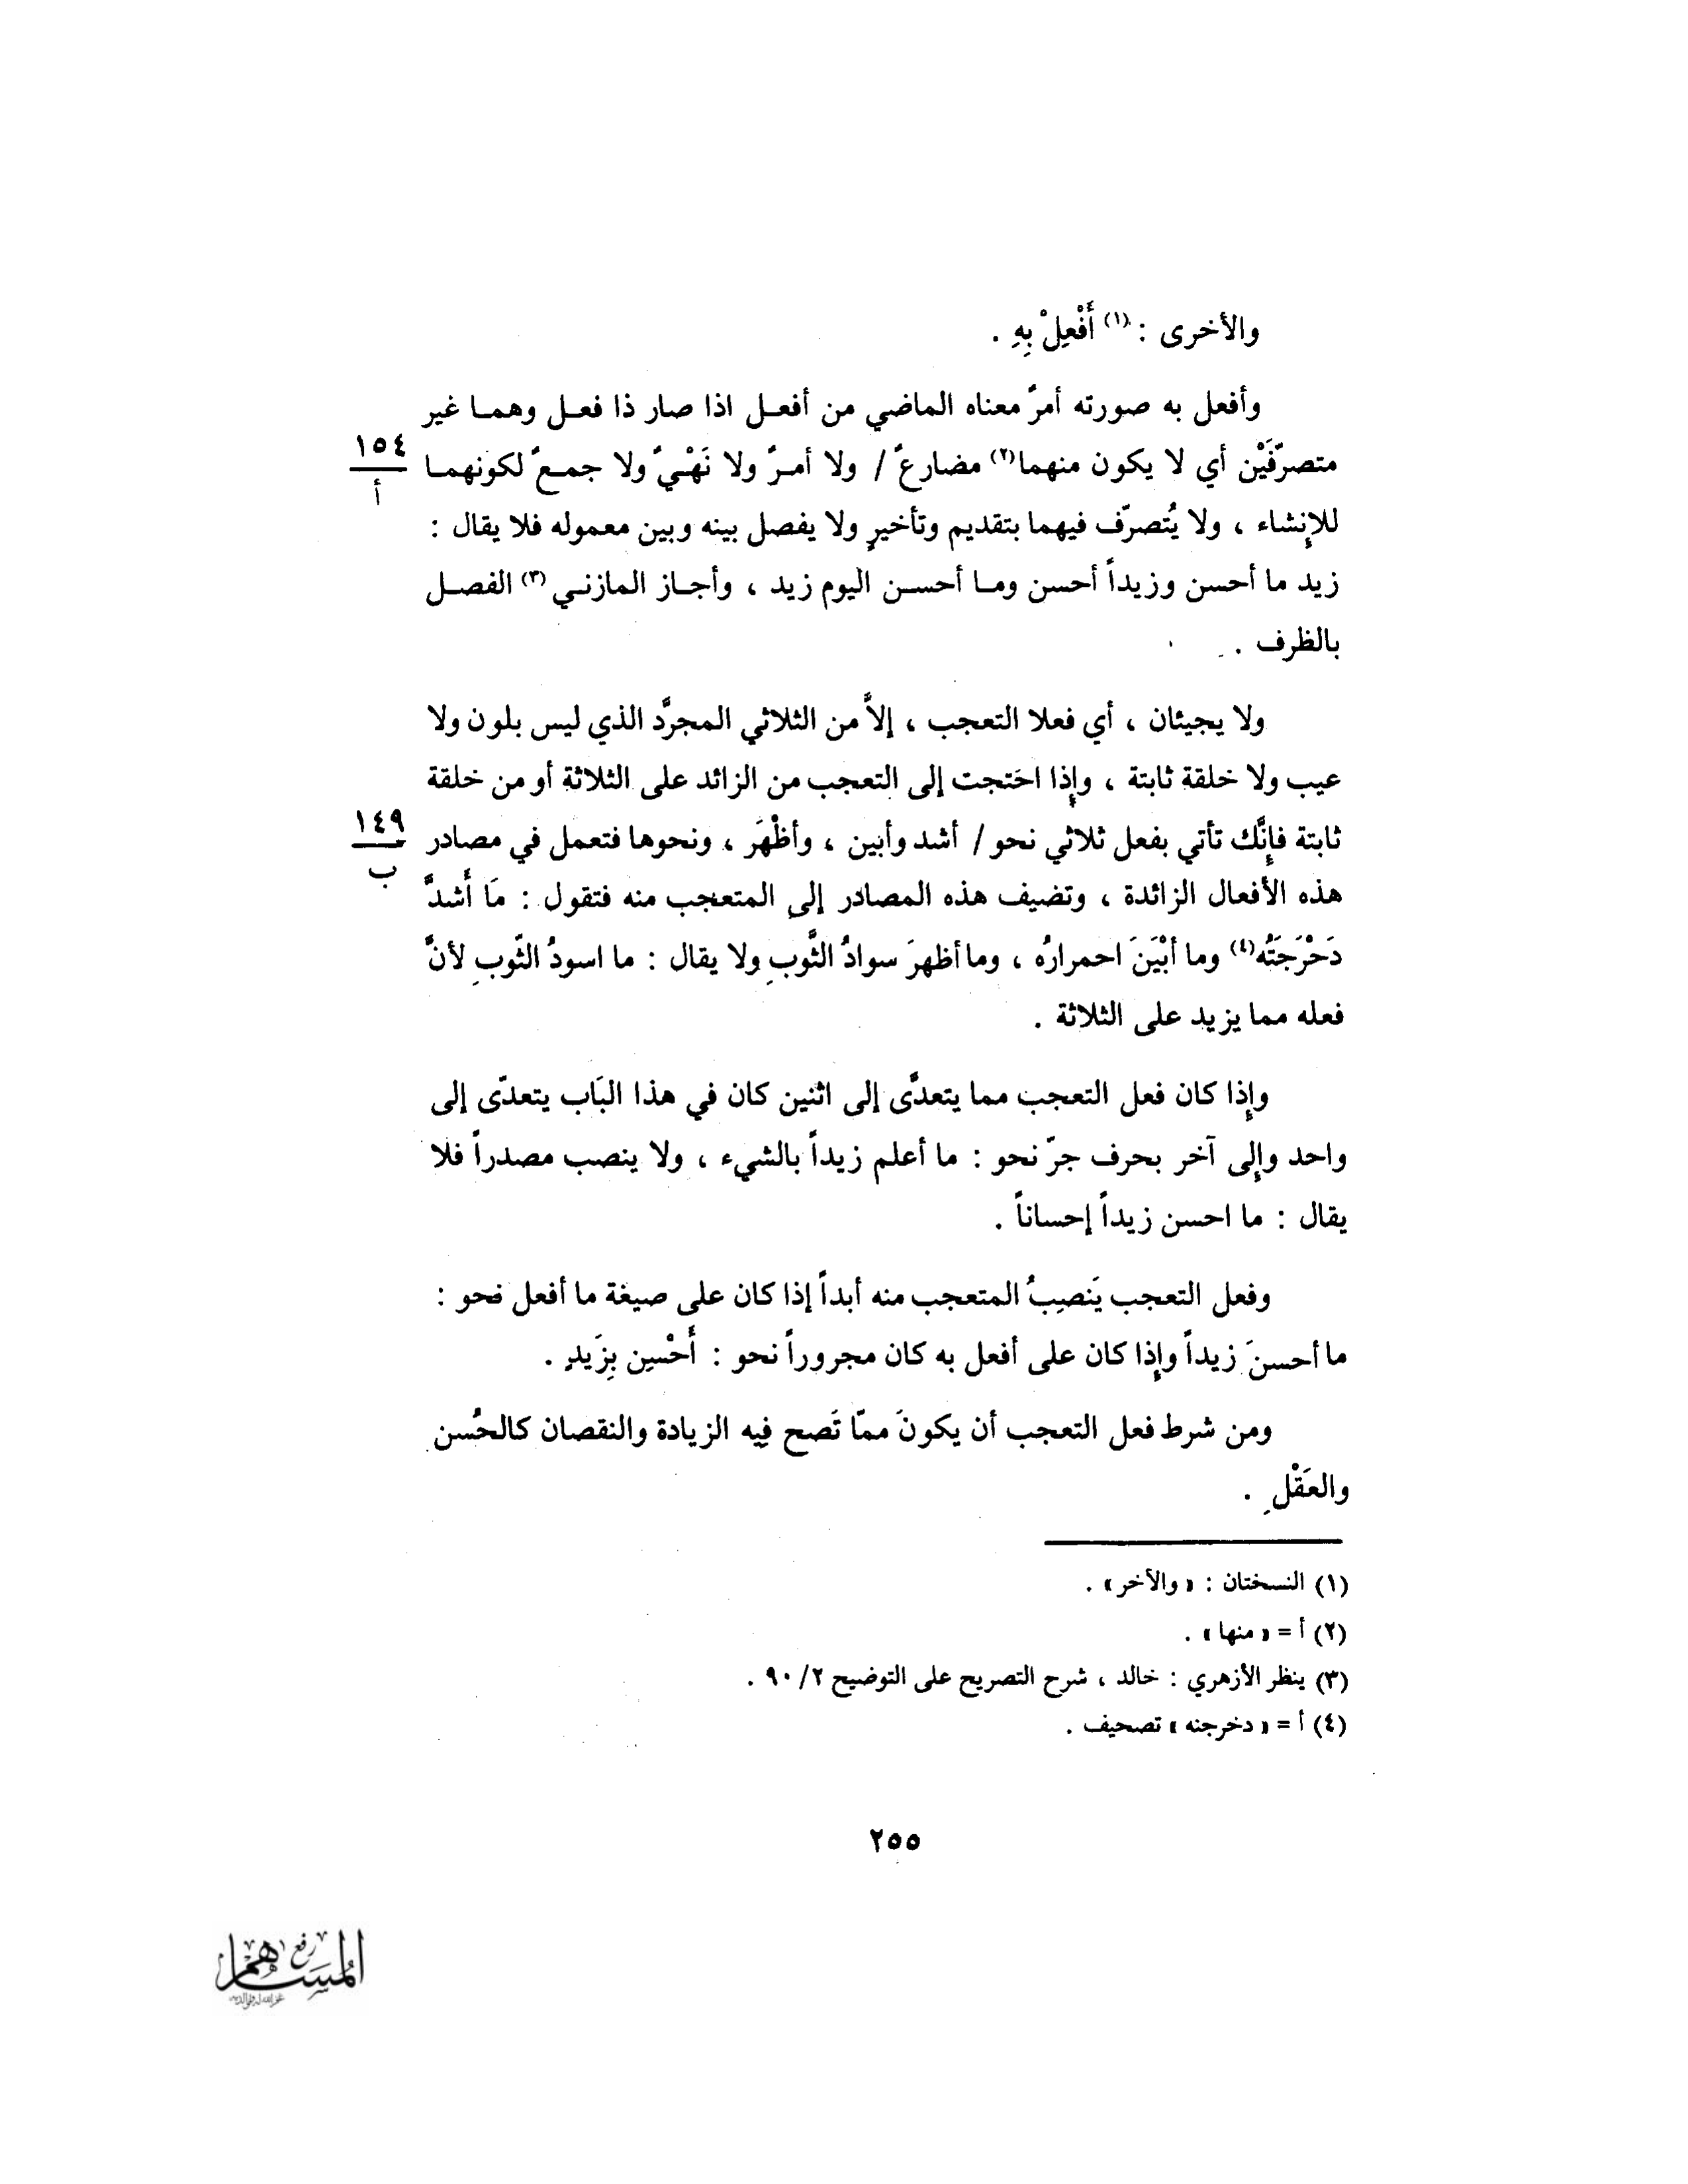 والأخرى : (١) أَفْعِلْ بِهِ .
وأفعل به صورته أمرٌ معناه الماضي من أفعل اذا صار ذا فعل وهما غير
متصرّفَيْن أي لا يكون منهما(٢) مضارعٌ / ولا أمرٌ ولا نَهْيٌ ولا جمعٌ لكونهما
١٥٤
أ
للإنشاء ، ولا يُتصرّف فيهما بتقديم وتأخيرٍ ولا يفصل بينه وبين معموله فلا يقال :
زيد ما أحسن وزيداً أحسن وما أحسن اليوم زيد ، وأجاز المازني (٣) الفصل
بالظرف .
ولا يجيئان ، أي فعلا التعجب ، إلاَّ من الثلاثي المجرَّد الذي ليس بلون ولا
عيب ولا خلقة ثابتة ، وإذا احتجت إلى التعجب من الزائد على الثلاثة أو من خلقة
ثابتة فإنَّك تأتي بفعل ثلاثي نحو / أشد وأبين ، وأظْهَر ، ونحوها فتعمل في مصادر
١٤٩
ب
هذه الأفعال الزائدة ، وتضيف هذه المصادر إلى المتعجب منه فتقول : مَا أَشدَّ
دَحْرَجَتُه(٤) وما أبْيَنَ احمرارُه ، وما أظهرَ سوادُ الثَّوبِ ولا يقال : ما اسودُ الثّوبِ لأنَّ
فعله مما يزيد على الثلاثة .
وإذا كان فعل التعجب مما يتعدَّى إلى اثنين كان في هذا البَاب يتعدّى إلى
واحد وإلى آخر بحرف جرّ نحو : ما أعلم زيداً بالشيء ، ولا ينصب مصدراً فلا
يقال : ما احسن زيداً إحساناً .
وفعل التعجب يَنصِبُ المتعجب منه أبداً إذا كان على صيغة ما أفعل نحو :
ما أحسنَ زيداً وإذا كان على أفعل به كان مجروراً نحو : أَحْسِن بِزَيدٍ .
ومن شرط فعل التعجب أن يكونَ ممّا تَصح فِيه الزيادة والنقصان كالحُسن
والعَقْلِ .
(١) النسختان : « والآخر » .
(٢) أ = « منها » .
(٣) ينظر الأزهري : خالد ، شرح التصريح على التوضيح ٩٠/٢ .
(٤) أ = « دخرجنه » تصحيف .
٢٥٥
رفع
المساهم
غفر الله له ولوالديه